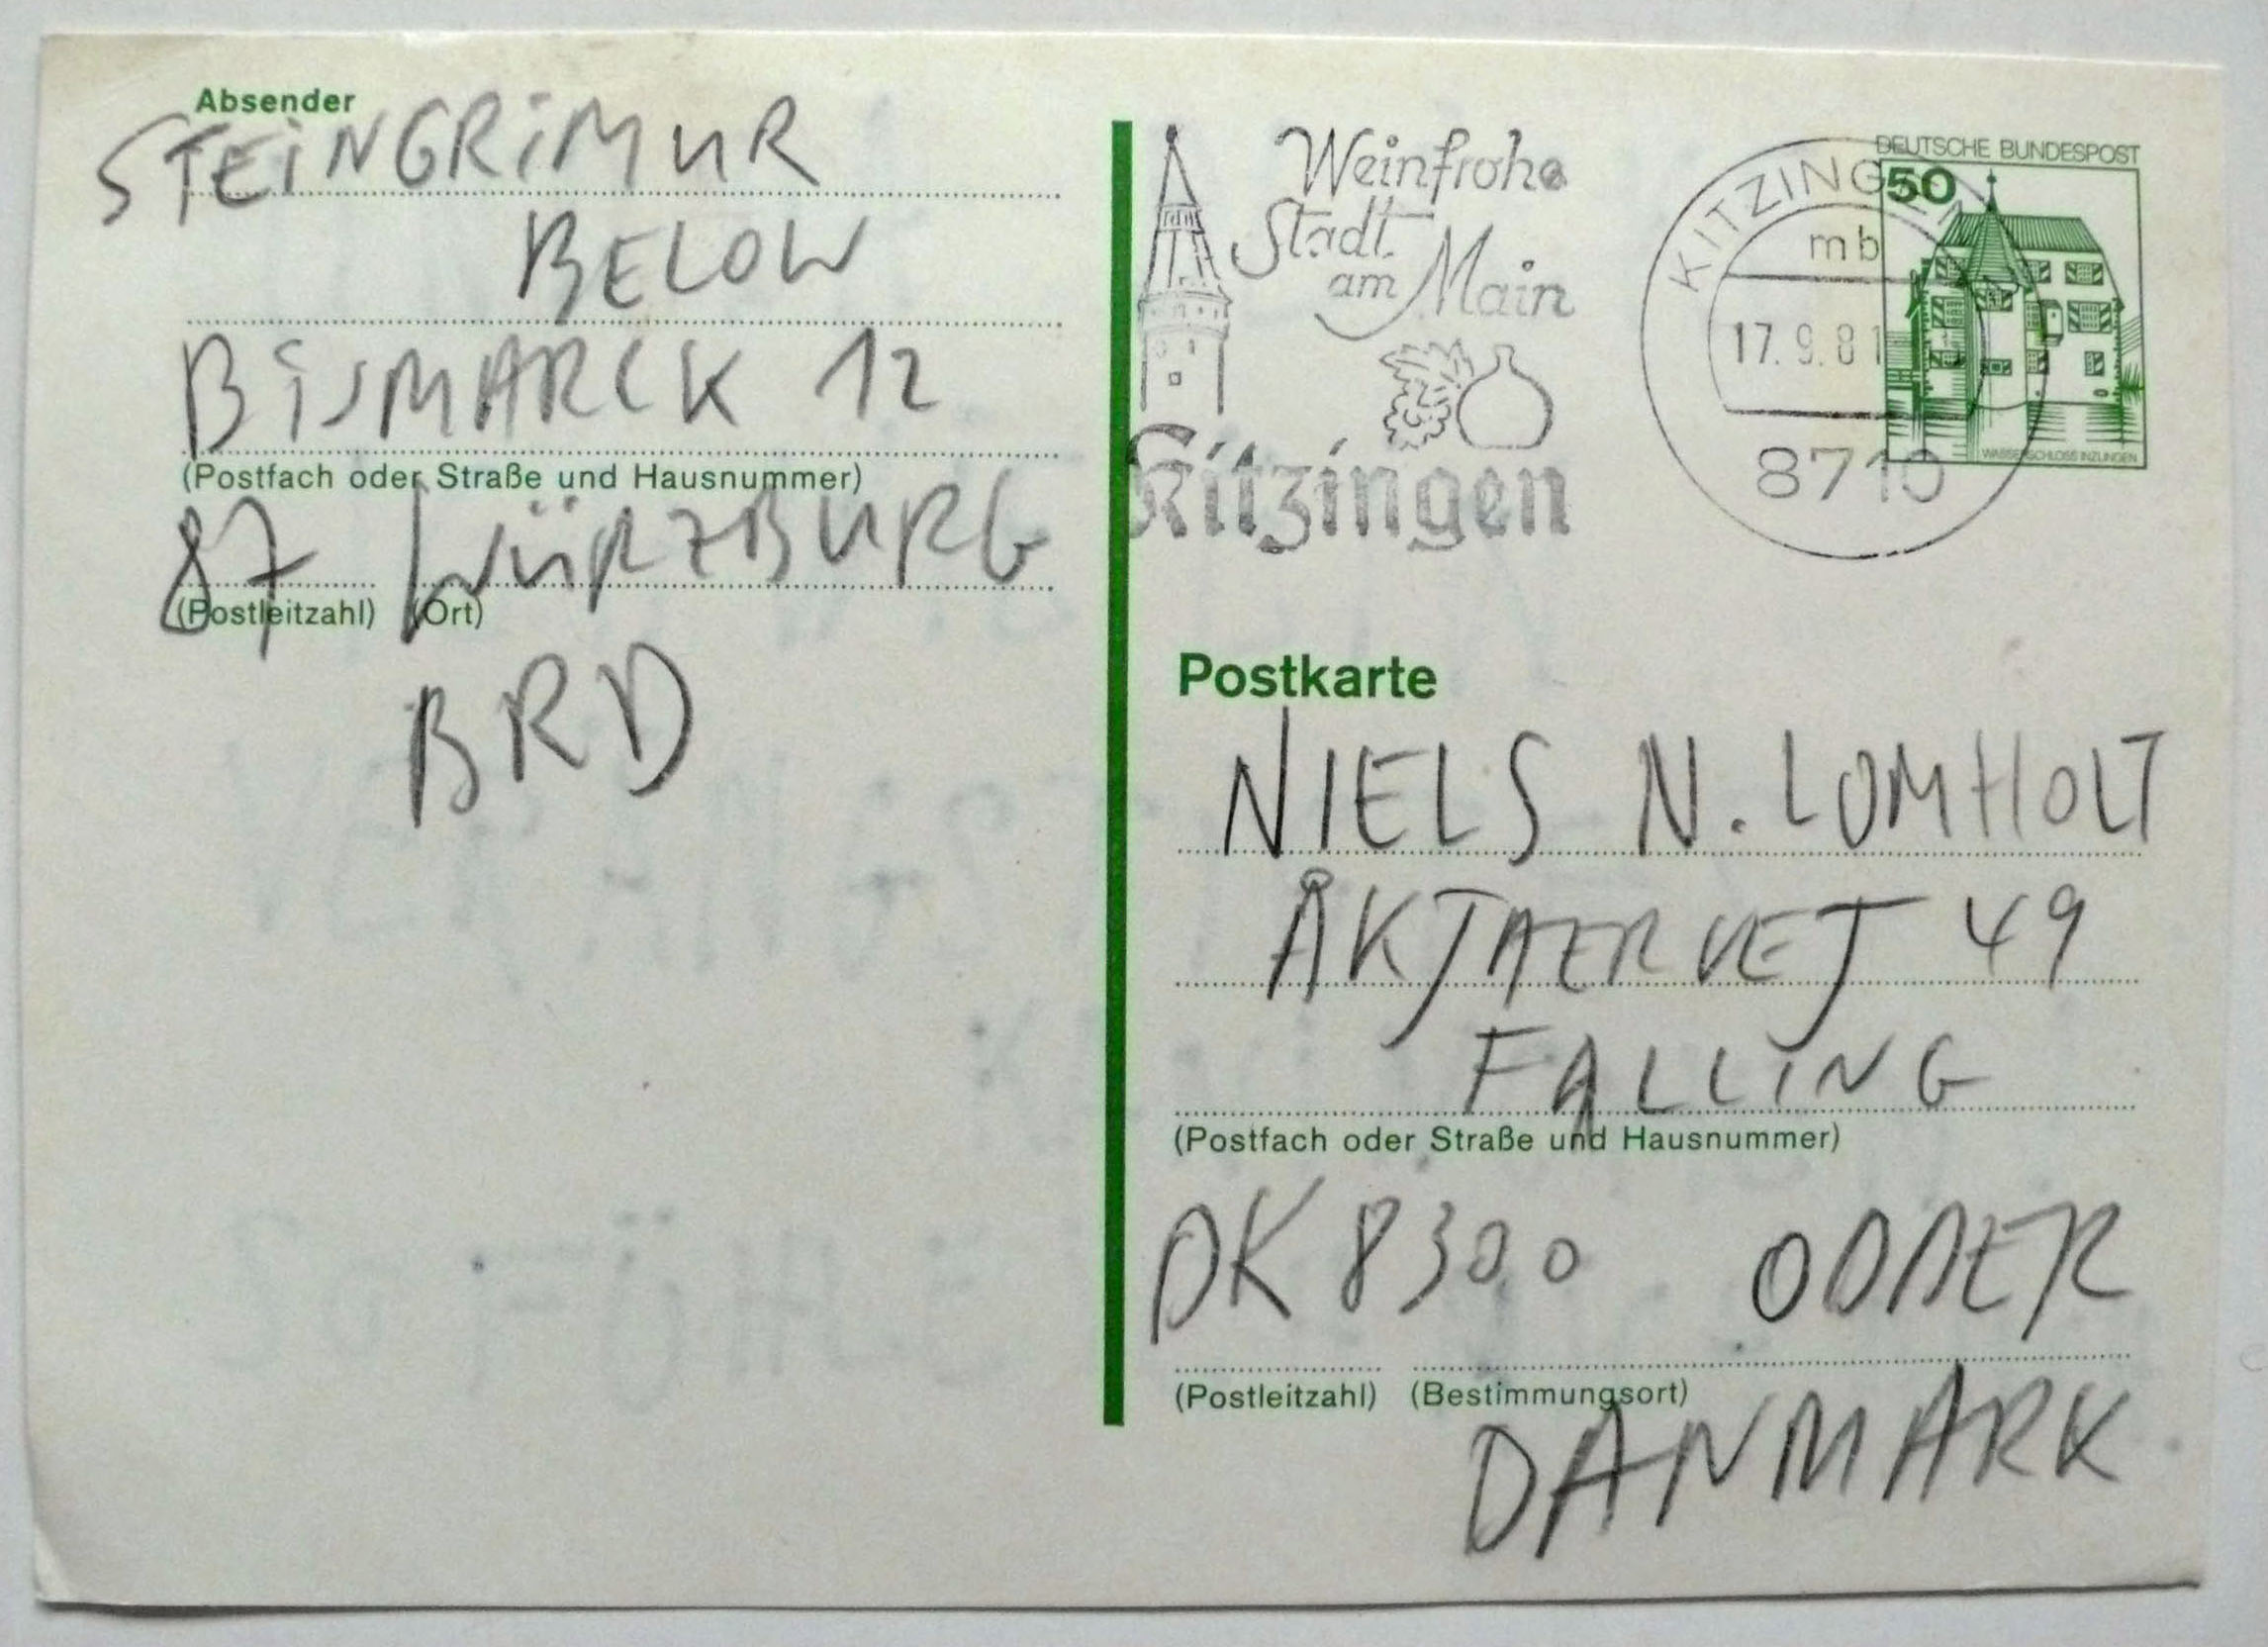 Absender
STEINGRIMUR
BELOW
BISMARCK 12
(Postfach oder Straße und Hausnummer)
87 WÜRZBURG
(Postleitzahl) (Ort)
BRD
Weinfrohe
Stadt
am Main
Kitzingen
KITZINGEN
mb
17.9.81
8710
DEUTSCHE BUNDESPOST
50
WASSERSCHLOSS INZLINGEN
Postkarte
NIELS N. LOMHOLT
ÅKJAERVEJ 49
FALLING
(Postfach oder Straße und Hausnummer)
DK 8300 ODDER
(Postleitzahl) (Bestimmungsort)
DANMARK